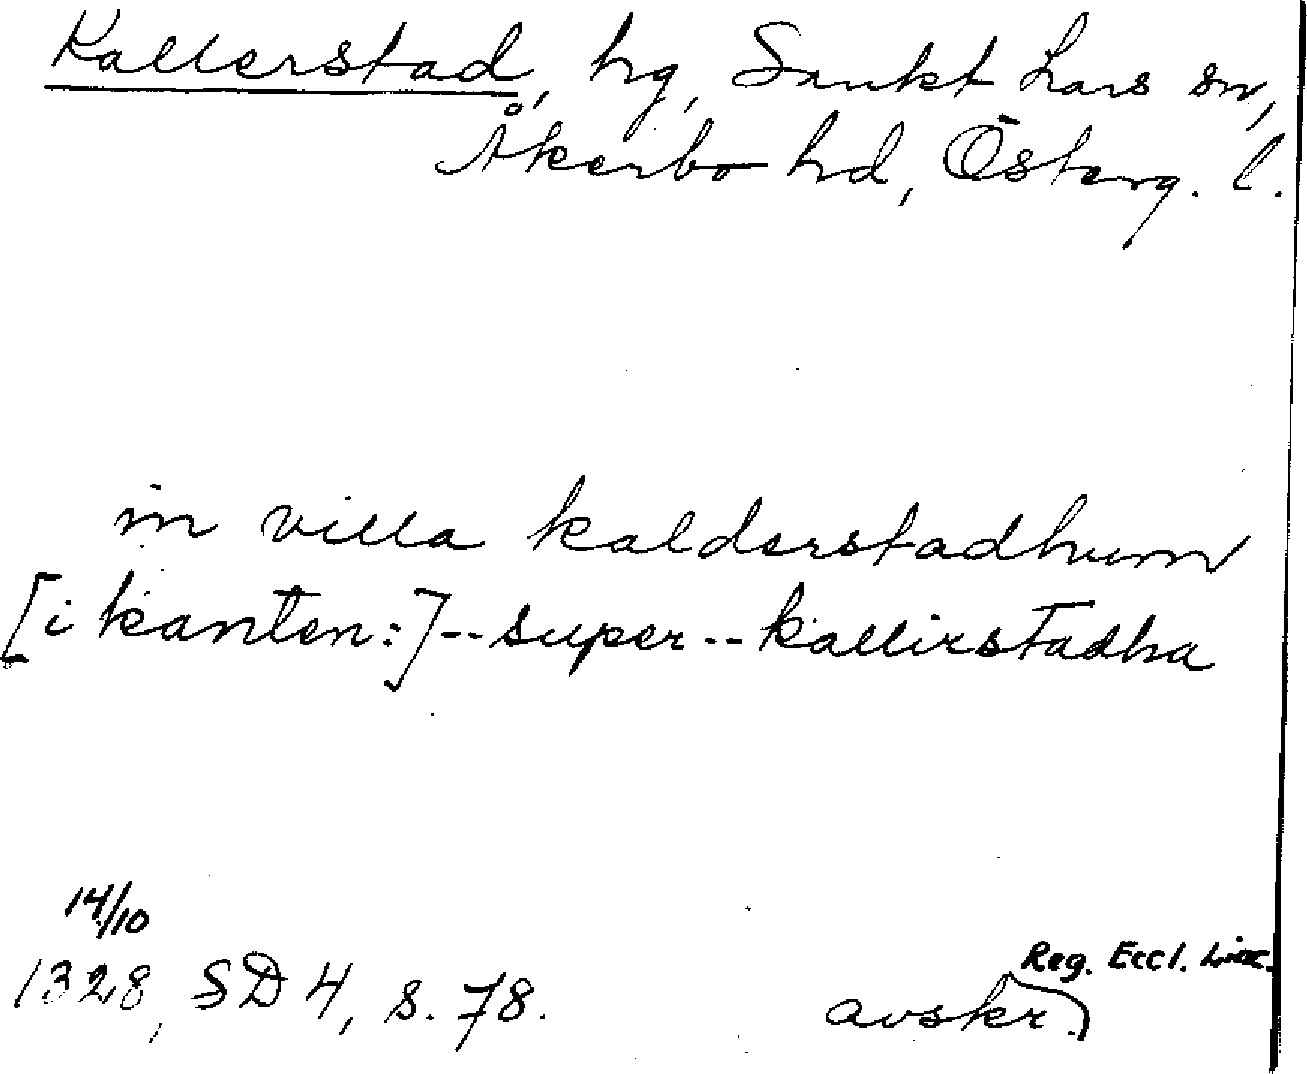 Kallerstad, hg, Sankt Lars sn,
Åkerbo hd, Österg. l.
in villa kalderstadhum
[i kanten:] -- super -- kallirstadha
14/10
1328, SD 4, s. 78.
Reg. Eccl. Linc.
avskr.